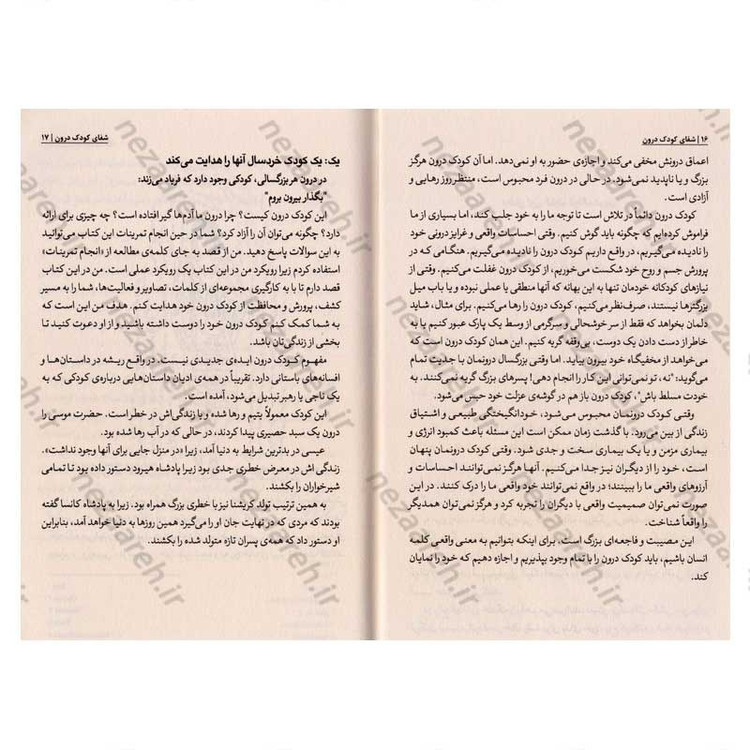 ۱۶ | شفای کودک درون
اعماق درونش مخفی می‌کند و اجازه‌ی حضور به او نمی‌دهد. اما آن کودک درون هرگز
بزرگ و یا ناپدید نمی‌شود. در حالی در درون فرد محبوس است، منتظر روز رهایی و
آزادی است.
کودک درون دائماً در تلاش است تا توجه ما را به خود جلب کند، اما بسیاری از ما
فراموش کرده‌ایم که چگونه باید گوش کنیم. وقتی احساسات واقعی و غرایز درونی خود
را نادیده می‌گیریم، در واقع داریم کودک درون را نادیده می‌گیریم. هنگامی که در
پرورش جسم و روح خود شکست می‌خوریم، از کودک درون غفلت می‌کنیم. وقتی از
نیازهای کودکانه خودمان تنها به این بهانه که آنها منطقی یا عملی نبوده و یا باب میل
بزرگترها نیستند، صرف‌نظر می‌کنیم، کودک درون را رها می‌کنیم. برای مثال، شاید
دلمان بخواهد که فقط از سر خوشحالی و سرگرمی از وسط یک پارک عبور کنیم یا به
خاطر از دست دادن یک دوست، بی‌وقفه گریه کنیم. این همان کودک درون است که
می‌خواهد از مخفیگاه خود بیرون بیاید. اما وقتی بزرگسال درونمان با جدیت تمام
می‌گوید: "نه، تو نمی‌توانی این کار را انجام دهی! پسرهای بزرگ گریه نمی‌کنند. به
خودت مسلط باش"، کودک درون باز هم در گوشه‌ی عزلت خود حبس می‌شود.
وقتی کودک درونمان محبوس می‌شود، خودانگیختگی طبیعی و اشتیاق
زندگی از بین می‌رود. با گذشت زمان ممکن است این مسئله باعث کمبود انرژی و
بیماری مزمن و یا یک بیماری سخت و جدی شود. وقتی کودک درونمان پنهان
است، خود را از دیگران نیز جدا می‌کنیم. آنها هرگز نمی‌توانند احساسات و
آرزوهای واقعی ما را ببینند؛ در واقع نمی‌توانند خود واقعی ما را ببینند. در این
صورت نمی‌توان صمیمیت واقعی با دیگران را تجربه کرد و هرگز نمی‌توان همدیگر
را واقعاً شناخت.
این مصیبت و فاجعه‌ای بزرگ است. برای اینکه بتوانیم به معنی واقعی کلمه
انسان باشیم، باید کودک درون را با تمام وجود بپذیریم و اجازه دهیم که خود را نمایان
کند.
شفای کودک درون | ۱۷
یک: یک کودک خردسال آنها را هدایت می‌کند
در درون هر بزرگسالی، کودکی وجود دارد که فریاد می‌زند:
"بگذار بیرون بروم"
این کودک درون کیست؟ چرا درون ما آدم‌ها گیر افتاده است؟ چه چیزی برای ارائه
دارد؟ چگونه می‌توان آن را آزاد کرد؟ شما در حین انجام تمرینات این کتاب می‌توانید
به این سوالات پاسخ دهید. من از قصد به جای کلمه‌ی مطالعه از «انجام تمرینات»
استفاده کردم زیرا رویکرد من در این کتاب یک رویکرد عملی است. من در این کتاب
قصد دارم تا با به کارگیری مجموعه‌ای از کلمات، تصاویر و فعالیت‌ها، شما را به مسیر
کشف، پرورش و محافظت از کودک درون خود هدایت کنم. هدف من این است که
به شما کمک کنم کودک درون خود را دوست داشته باشید و از او دعوت کنید تا
بخشی از زندگی‌تان باشد.
مفهوم کودک درون ایده‌ی جدیدی نیست. در واقع ریشه در داستان‌ها و
افسانه‌های باستانی دارد. تقریباً در همه‌ی ادیان داستان‌هایی درباره‌ی کودکی که به
یک ناجی یا رهبر تبدیل می‌شود، آمده است.
این کودک معمولاً یتیم و رها شده و یا زندگی‌اش در خطر است. حضرت موسی را
درون یک سبد حصیری پیدا کردند، در حالی که در آب رها شده بود.
عیسی در بدترین شرایط به دنیا آمد، زیرا «در منزل جایی برای آنها وجود نداشت».
زندگی اش در معرض خطری جدی بود زیرا پادشاه هیرود دستور داده بود تا تمامی
شیرخواران را بکشند.
به همین ترتیب تولد کریشنا نیز با خطری بزرگ همراه بود، زیرا به پادشاه کانسا گفته
بودند که مردی که در نهایت جان او را می‌گیرد همین روزها به دنیا خواهد آمد، بنابراین
او دستور داد که همه‌ی پسران تازه متولد شده را بکشند.
nezaareh.ir